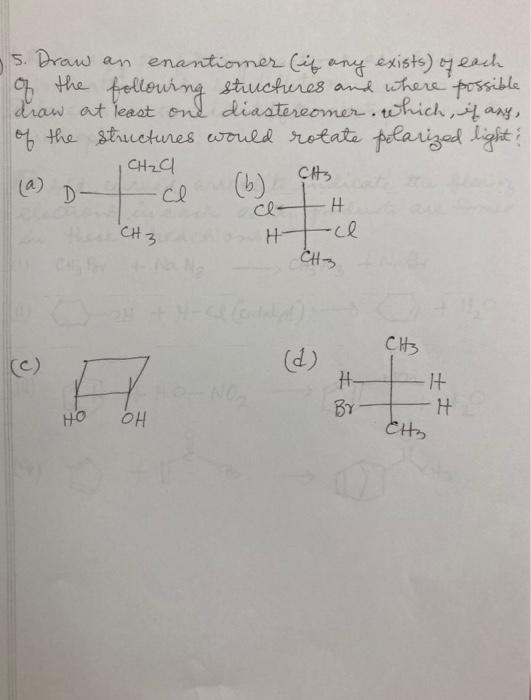 5. Draw an enantiomer (if any exists) of each
of the following structures and where possible
draw at least one diastereomer. which, if any,
of the structures would rotate polarized light?
(a) CH2Cl
D Cl
CH3
(b) CH3
Cl H
H Cl
CH3
(c)
HO OH
(d) CH3
H H
Br H
CH3